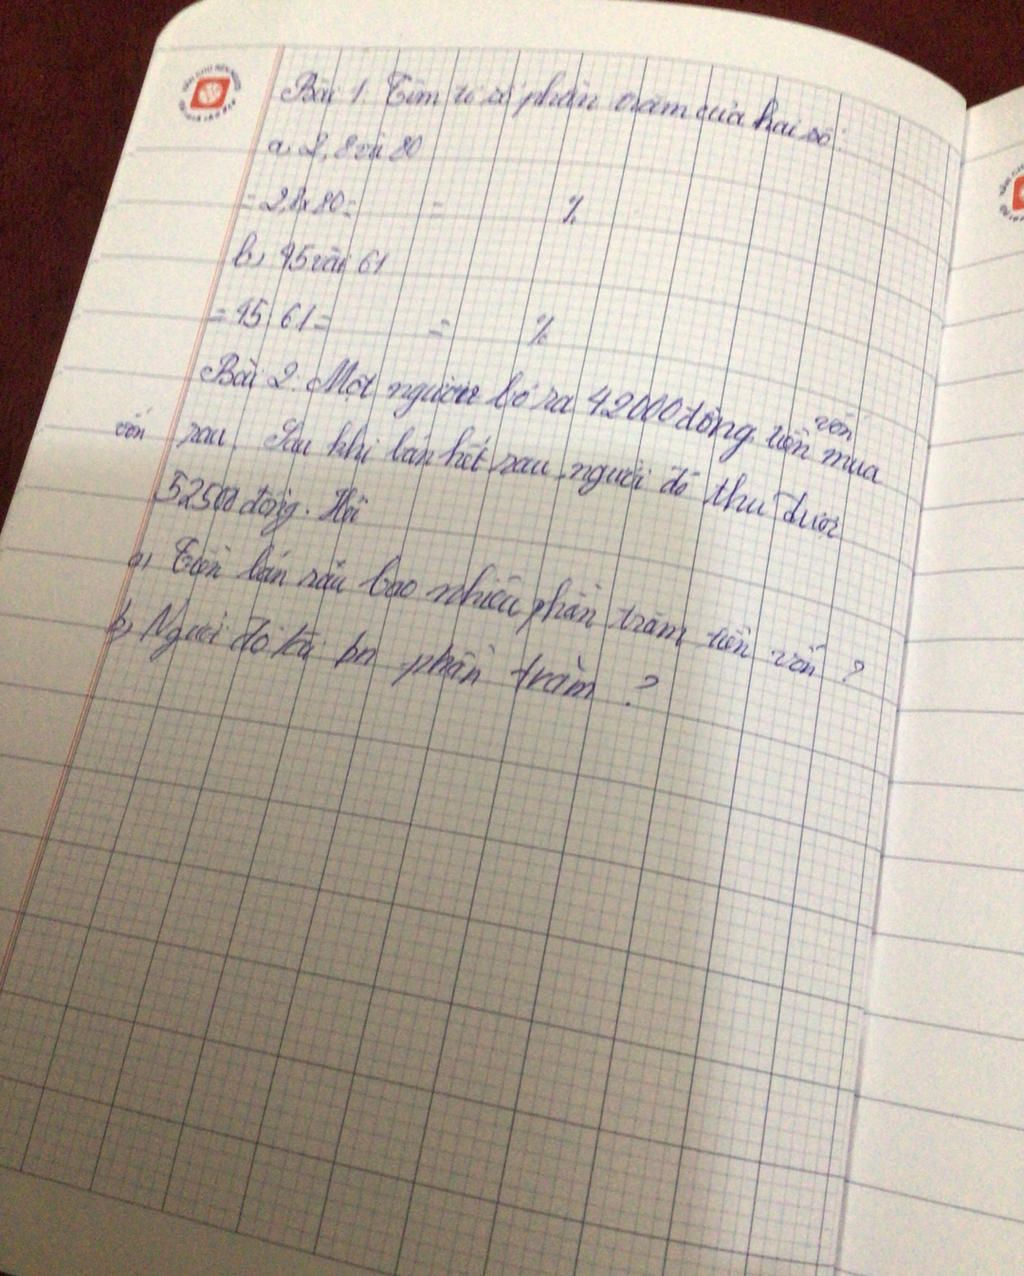 Bài 1. Tìm tỉ số phần trăm của hai số:
a. 2,8 và 80
= 2,8 x 80 = = %
b, 95 và 61
= 95 61 = = %
Bài 2. Một người bỏ ra 42000 đồng tiền vốn mua
vốn rau. Sau khi bán hết rau, người đó thu được
52500 đồng. Hỏi
a, Tiền bán rau bao nhiêu phần trăm tiền vốn?
b, Người đó lãi bn phần trăm?